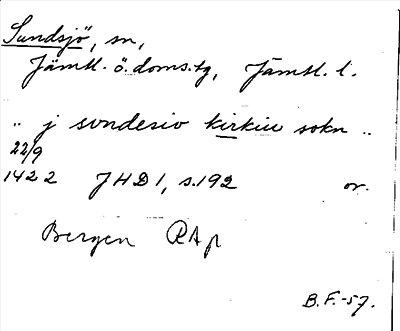 Sundsjö, sn,
Jämtl. ö. doms.tg, Jämtl. l.
.. j svndesio kirkiu sokn ..
22/9
1422 JHD 1, s.192 or.
Bergen RAp
B.F.-57.